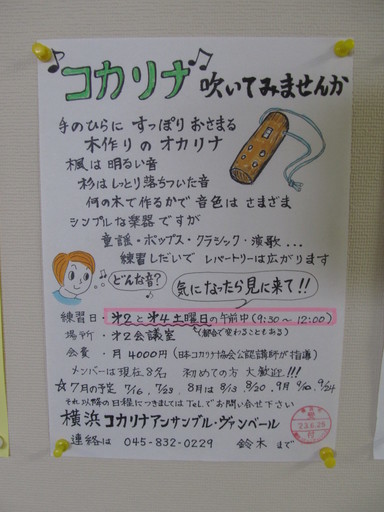 ♪コカリナ♪吹いてみませんか
手のひらに すっぽりおさまる
木作りの オカリナ
楓は 明るい音
杉は しっとり落ちついた音
何の木で作るかで 音色は さまざま
シンプルな楽器ですが
童謡・ポップス・クラシック・演歌...
練習しだいで レパートリーは広がります
どんな音?
気になったら見に来て!!
練習日・オ2とオ4土曜日の午前中(9:30〜12:00)
場所・オ2会議室 (都合で変わることもある)
会費・月4000円(日本コカリナ協会公認講師が指導)
メンバーは現在8名 初めての方 大歓迎!!!
☆7月の予定 7/16、7/23、8月は8/13、8/20、9月9/10、9/24
それ以降の日程につきましてはTeLでお問い合せ下さい
横浜コカリナアンサンブル・ヴァンベール
連絡は 045-832-0229 鈴木まで
23.6.25